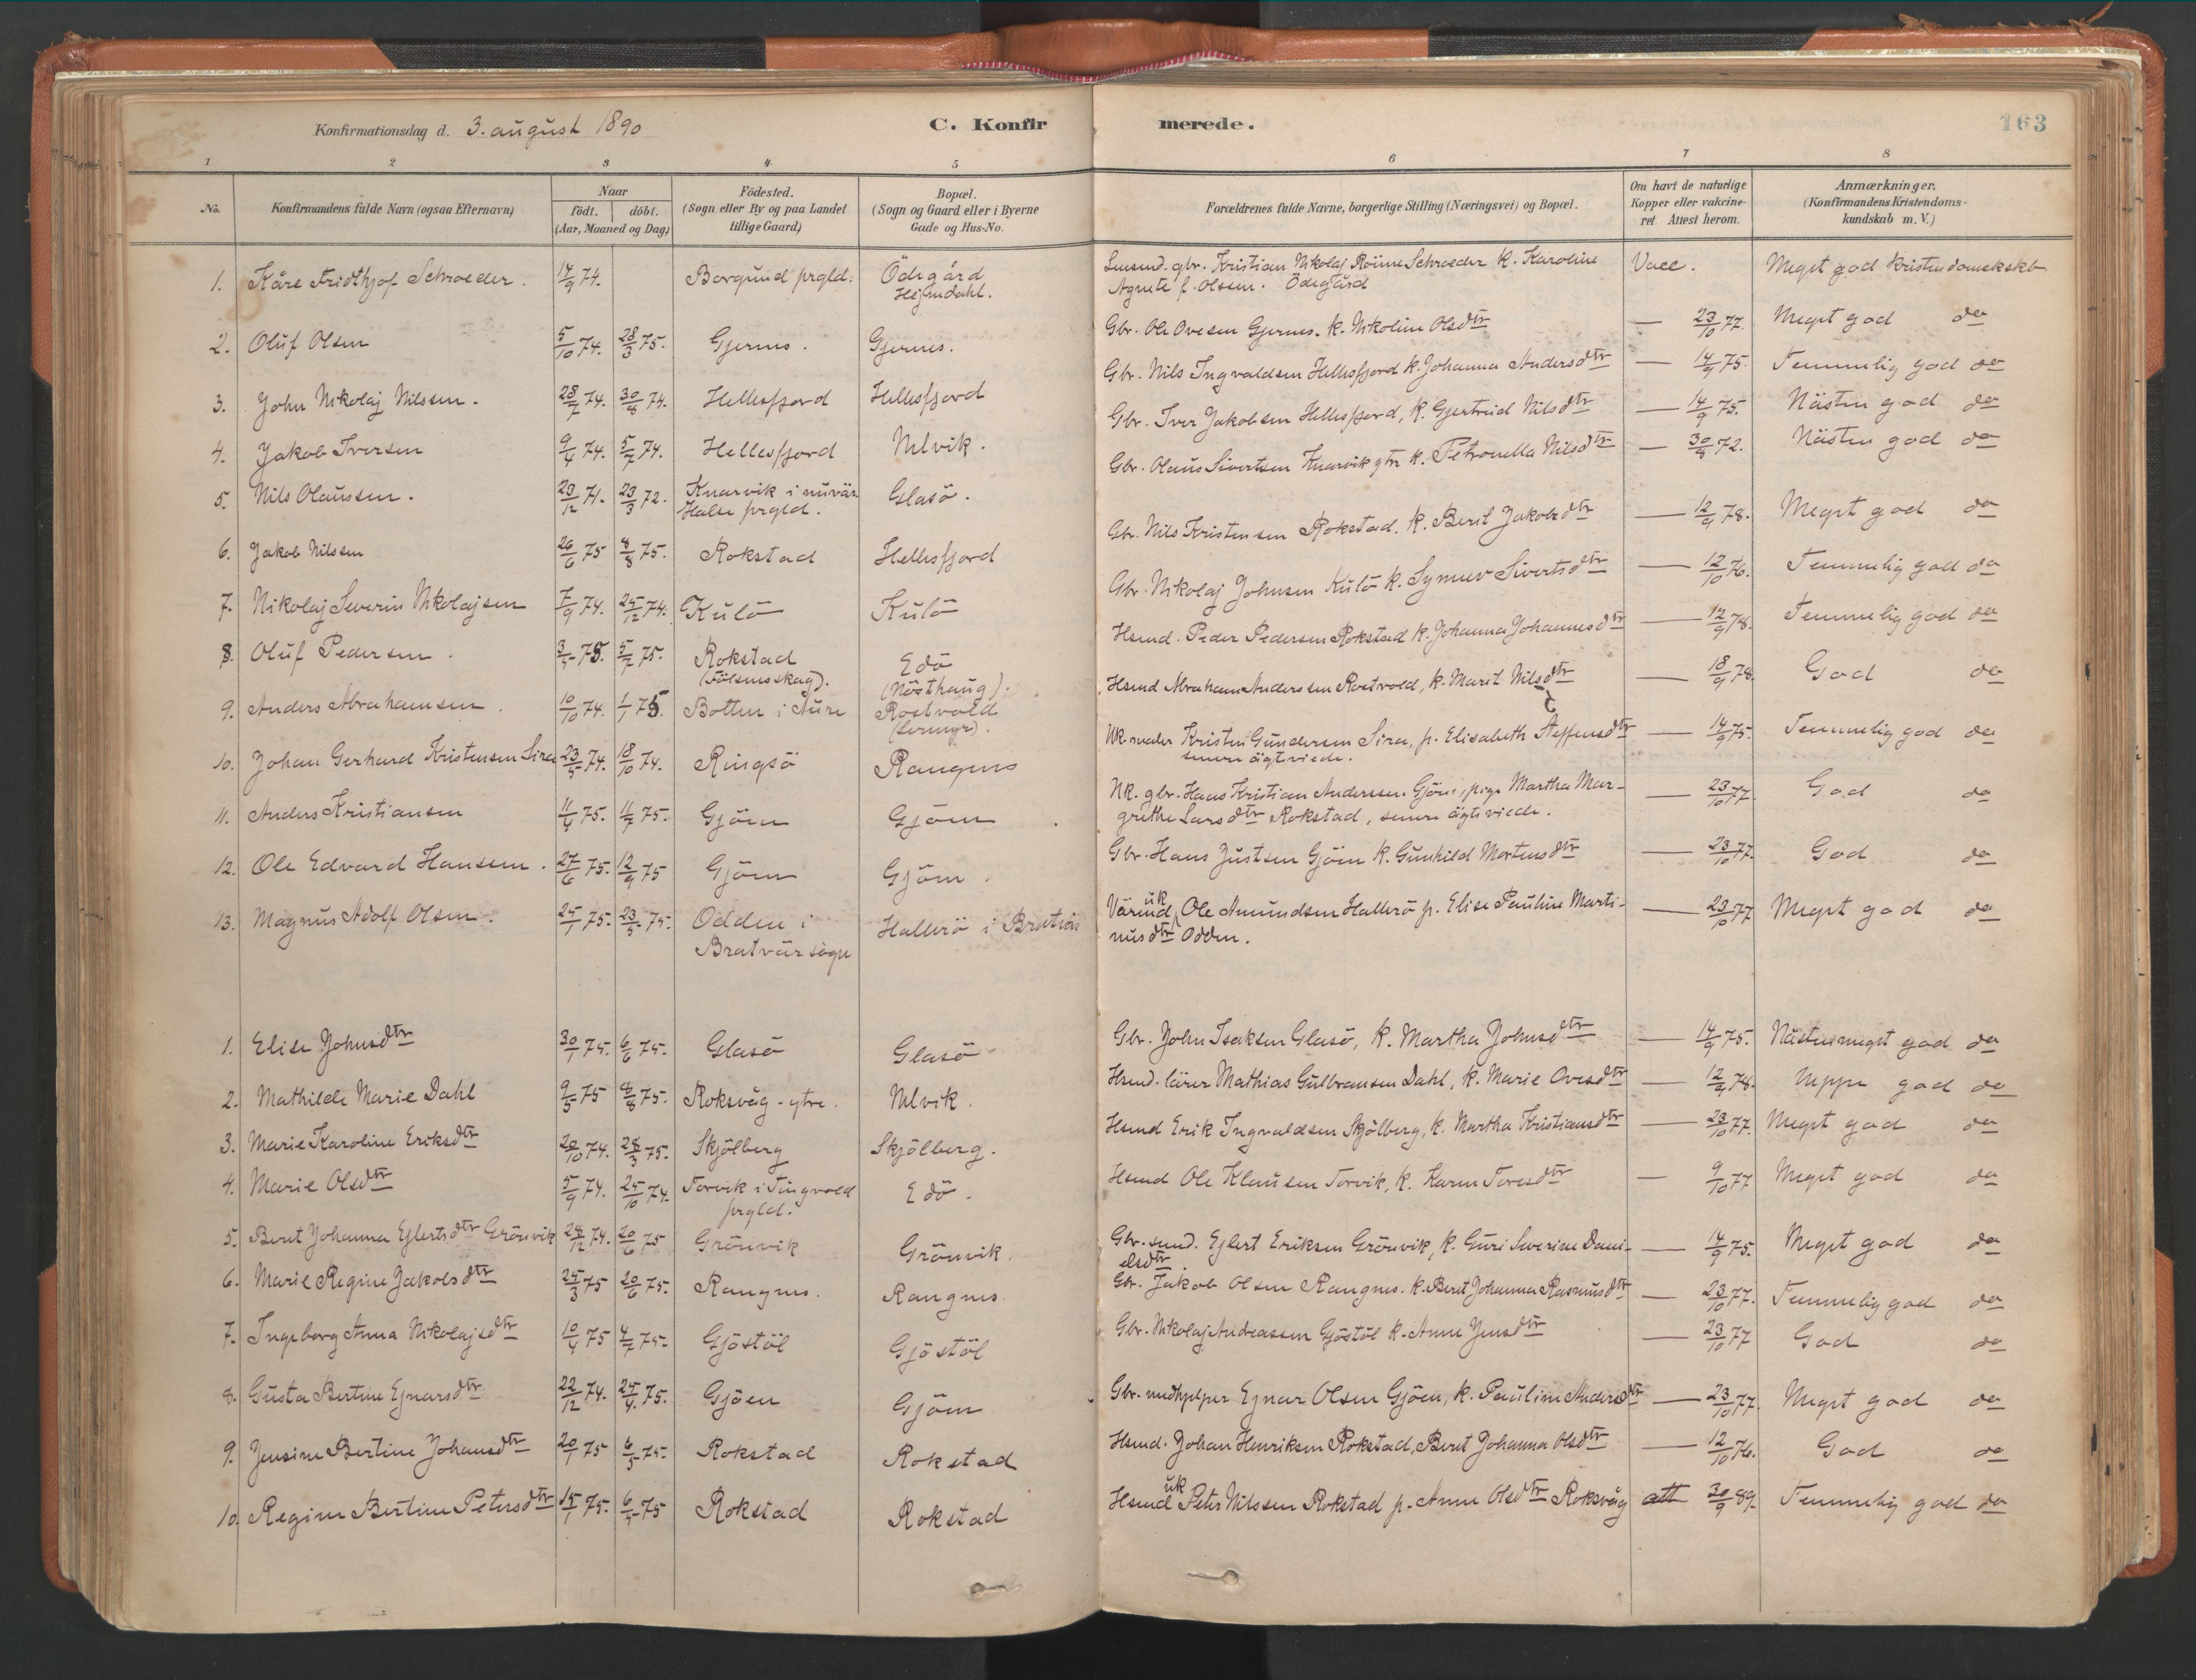 Konfirmationsdag d. 3. august 1890
C. Konfirmerede.
163
1 2 3 4 5 6 7 8
No.
Konfirmandens fulde Navn (ogsaa Efternavn)
Naar
födt. | döbt.
(Aar, Maaned og Dag)
Födested.
(Sogn eller By og paa Landet
tillige Gaard)
Bopæl.
(Sogn og Gaard eller i Byerne
Gade og Hus-No.
Forældrenes fulde Navne, borgerlige Stilling (Næringsvei) og Bopæl.
Om havt de naturlige
Kopper eller vakcine-
ret Attest herom.
Anmærkninger.
(Konfirmandens Kristendoms-
kundskab m. V.)
1. Kåre Fridthjof Schroeder. 14/9 74. Borgund prgld. Ödegård Kristian Nikolaj Röine Schroeder k. Karoline Vacc. Meget god kristendomskskb
Hejmdahl. Agnete f. Olsen. Ödegård
2. Oluf Olsen 5/10 74. 28/3 75. Gjernes. Gjernes. Gbr. Ole Ovesen Gjernes. k. Nikoline Olsdtr — 23/10 77. Meget god do
3. John Nikolaj Nilssen. 28/7 74. 30/8 74. Hellesfjord Hellesfjord Gbr. Nils Ingvaldsen Hellesfjord k. Johanna Andersdtr — 14/9 75. Temmelig god do
4. Jakob Iversen 9/4 74. 5/7 74. Hellesfjord Ulvik. Gbr. Iver Jakobsen Hellesfjord, k. Gjertrud Nilsdtr — 14/9 75. Nästen god do
5. Nils Olaussen. 23/12 71. 23/3 72. Knarvik i nuvär Glasö. Gbr. Olaus Sivertsen Knarvik ytre k. Petronella Nilsdtr — 30/8 72. Nästen god do
Halse prgld.
6. Jakob Nilssen 26/6 75 8/8 75. Rokstad Hellesfjord Gbr. Nils Kristensen Rokstad. k. Berit Jakobsdtr — 12/9 78. Meget god do
7. Nikolaj Severin Nikolajsen 7/9 74. 25/12 74. Kulö Kulö Gbr. Nikolaj Johnsen Kulö k. Synnev Sivertsdtr — 12/10 76. Temmelig god do
8. Oluf Pedersen. 3/5 75. 5/7 75. Rokstad Edö Hsmd. Peder Pedersen Rokstad k. Johanna Johannesdtr — 12/9 78. Temmelig god do
(Fölsneskag). (Nösthaug).
9. Anders Abrahamsen. 10/10 74. 1/1 75. Botten i Aure Rostvold Hsmd Abraham Anderssen Rostvold, k. Marit Nilsdtr — 18/9 78. God do
10. Johan Gerhard Kristensen Sira 23/5 74. 18/10 74. Ringsö Rangnes Kristen Gundersen Sira, p. Elisabeth Steffensdtr — 14/9 75. Temmelig god do
senere ägteviede.
11. Anders Kristiansen 11/4 75. 11/7 75. Gjöen Gjöen Uk. gbr. Hans Kristian Anderssen Gjöen, pige Martha Mar- — 23/10 77. God do
grethe Larsdtr Rokstad, senere ägteviede.
12. Ole Edvard Hanssen. 27/6 75. 12/9 75 Gjöen Gjöen. Gbr. Hans Justsen Gjöen k. Gunhild Mortensdtr — 23/10 77. God do
13. Magnus Adolf Olsen. 25/1 75. 23/5 75. Odden i Hallerö i Bratvär uk Ole Amundsen Hallerö p. Elise Pauline Marti- — 23/10 77 Meget god do
Bratvär sogn nusdtr Odden.
1. Elise Johnsdtr 30/1 75. 6/6 75. Glasö Glasö Gbr. John Isaksen Glasö, k. Martha Johnsdtr — 14/9 75. Nästen meget god do
2. Mathilde Marie Dahl 9/5 75 8/8 75. Roksvåg - ytre. Ulvik. Hsmd. lärer Mathias Gulbransen Dahl, k. Marie Ovesdtr — 12/9 78. Uppe god do
3. Marie Karoline Eriksdtr 20/10 74. 28/3 75. Skjölberg Skjölberg. Hsmd Erik Ingvaldsen Skjölberg, k. Martha Kristiansdtr — 23/10 77. Meget god do
4. Marie Olsdtr 5/9 74. 25/10 74. Torvik i Tingvold Edö. Hsmd Ole Klausen Torvik, k. Karen Toresdtr — 9/10 77 Meget god do
prgld.
5. Berit Johanna Ejlertsdtr Grönvik 28/12 74. 20/6 75 Grönvik Grönvik. Gbr. smd. Ejlert Eriksen Grönvik, k. Guri Severine Dani- — 14/9 75. Meget god do
elsdtr.
6. Marie Regine Jakobsdtr 25/3 75 20/6 75. Rangnes. Rangnes Gbr. Jakob Olsen Rangnes. k. Berit Johanna Rasmusdtr — 23/10 77. Temmelig god do
7. Ingeborg Anna Nikolajsdtr 10/4 75 4/7 75. Gjöstöl Gjöstöl Gbr. Nikolaj Andreassen Gjöstöl k. Anne Jensdtr — 23/10 77 God do
8. Gusta Bertine Ejnarsdtr 22/12 74. 25/4 75. Gjöen Gjöen Gbr. medhjelper Ejnar Olsen Gjöen, k. Pauline Andersdtr — 23/10 77. Meget god do
9. Jensine Bertine Johansdtr 20/1 75 6/5 75. Rokstad Rokstad Hsmd. Johan Henriksen Rokstad, Berit Johanna Olsdtr — 12/10 76. God do
10. Regine Bertine Petersdtr 15/1 75. 6/5 75 Rokstad Rokstad Hsmd uk Peter Nilssen Rokstad p. Anne Olsdtr Roksvåg att 30/9 89. Temmelig god do